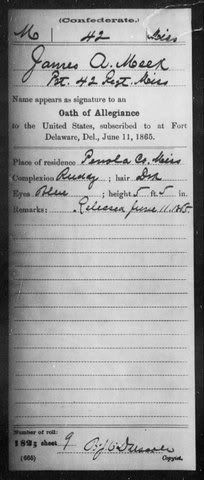 (Confederate.)
M 42 Miss
James A. Meek
Pvt. 42 Regt. Miss
Name appears as signature to an
Oath of Allegiance
to the United States, subscribed to at Fort
Delaware, Del., June 11, 1865.
Place of residence Panola Co. Miss
Complexion Ruddy ; hair Drk
Eyes Blue ; height 5 ft. 5 in.
Remarks: Released June 11. 1865.
Number of roll:
sheet 9
(665) Copyist.